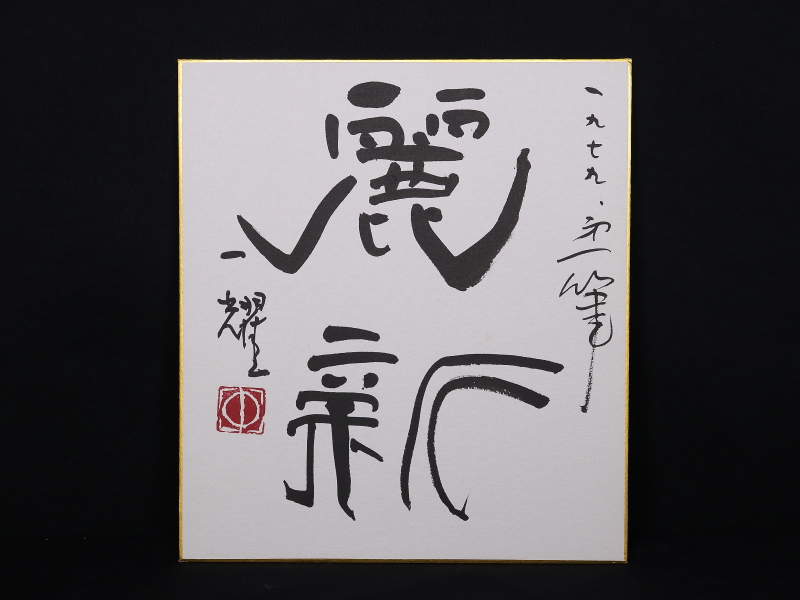 一九七九、第一筆
麗新
一耀